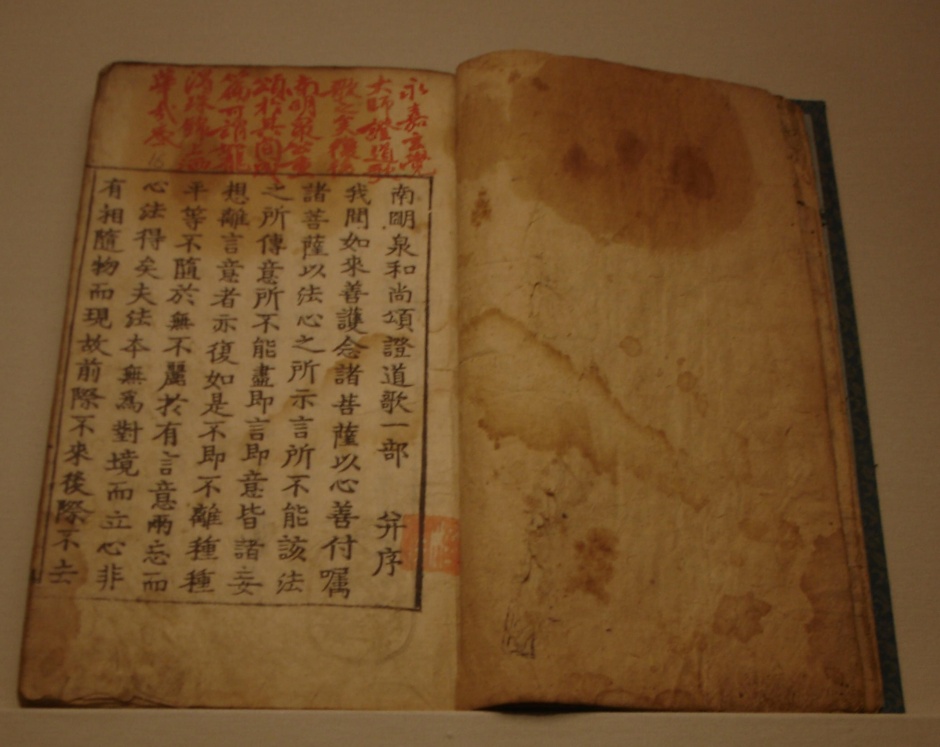 永嘉玄覺
大師證道歌
南明泉公重
頌於其間
篇可謂
南明泉和尚頌證道歌一部 并序
我聞如來善護念諸菩薩以心善付囑
諸菩薩以法心之所示言所不能該法
之所傳意所不能盡即言即意皆諸妄
想離言意者亦復如是不即不離種種
平等不隨於無不麗於有言意兩忘而
心法得矣夫法本無爲對境而立心非
有相隨物而現故前際不來後際不去